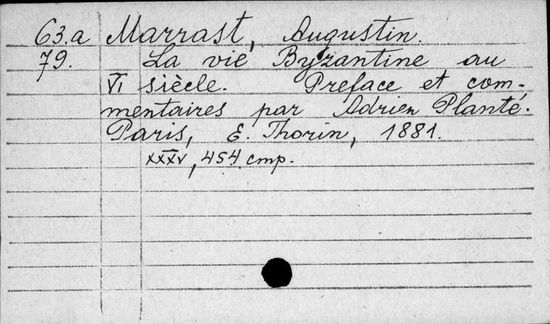 63.a Marrast, Augustin.
79. La vie Byzantine au
VI siècle. Preface et com-
mentaires par Adrien Plante.
Paris, E. Thorin, 1881.
XXXV, 454 cmp.